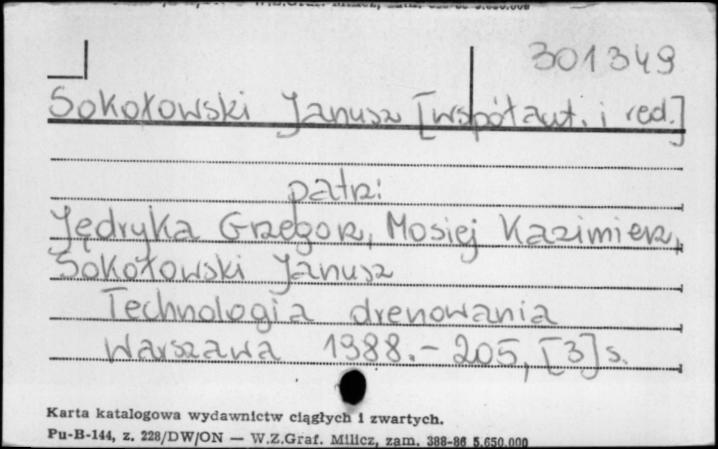 W.Z.Graf. Milicz, zam. 388-86 5.650.000
301349
Sokołowski Janusz [współaut. i red.]
patrz:
Jędryka Grzegorz, Mosiej Kazimierz,
Sokołowski Janusz
Technologia drenowania
Warszawa 1988. - 205, [3] s.
Karta katalogowa wydawnictw ciągłych i zwartych.
Pu-B-144, z. 228/DW/ON — W.Z.Graf. Milicz, zam. 388-86 5.650.000